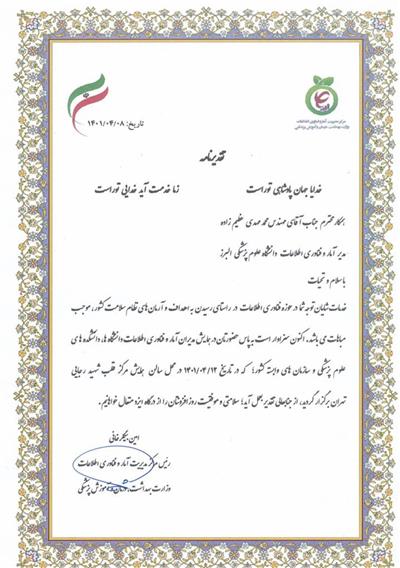 مرکز مدیریت آمار و فناوری اطلاعات
وزارت بهداشت، درمان و آموزش پزشکی
تاریخ: ۱۴۰۱/۰۴/۰۸
تقدیرنامه
خدایا جهان پادشاهی توراست
زما خدمت آید خدایی توراست
همکار محترم جناب آقای مهندس محمد مهدی عظیم زاده
مدیر آمار و فناوری اطلاعات دانشگاه علوم پزشکی البرز
با سلام و تحیات
خدمات شایان توجه شما در حوزه فناوری اطلاعات در راستای رسیدن به اهداف و آرمان های نظام سلامت کشور، موجب
مباهات می باشد. اکنون سزاوار است به پاس حضورتان در همایش مدیران آمار و فناوری اطلاعات دانشگاه ها، دانشکده های
علوم پزشکی و سازمان های وابسته کشور؛ که در تاریخ ۱۴۰۱/۰۴/۱۴ در محل سالن همایش مرکز قلب شهید رجایی
تهران برگزار گردید، از جنابعالی تقدیر بعمل آید؛ سلامتی و موفقیت روزافزونتان را از درگاه ایزد متعال خواهانیم.
امین بیگلرخانی
رئیس مرکز مدیریت آمار و فناوری اطلاعات
وزارت بهداشت، درمان و آموزش پزشکی